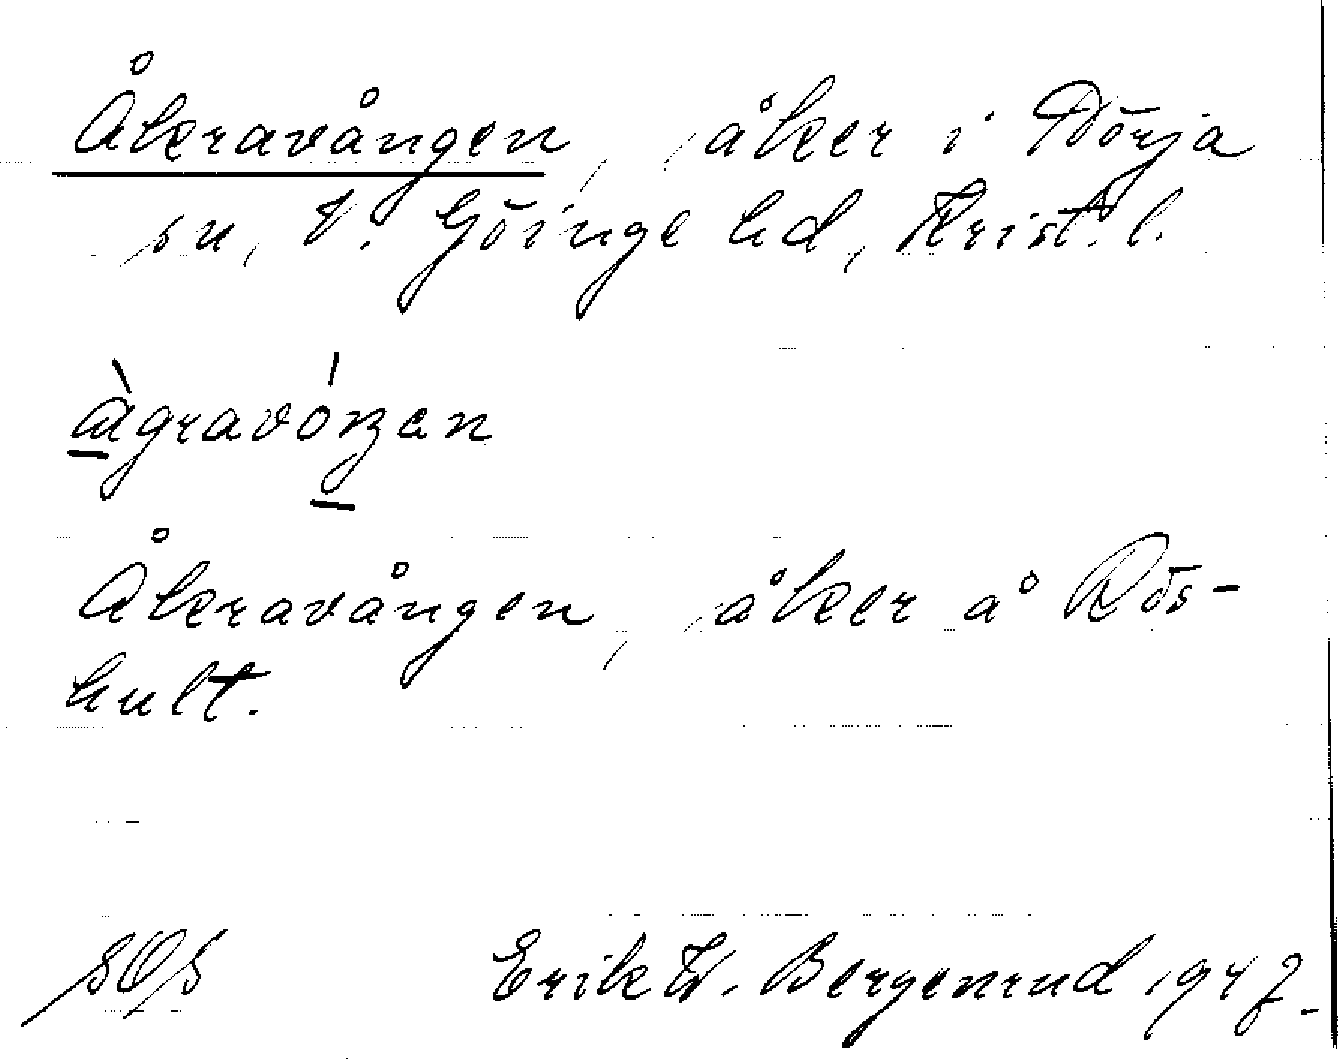 Åkravången, åker i Nörja
sn, V. Göinge hd, Krist. l.
àgravóŋen
Åkravången, åker å Rös-
hult.
SOS Erik W. Bergenrud 1947.